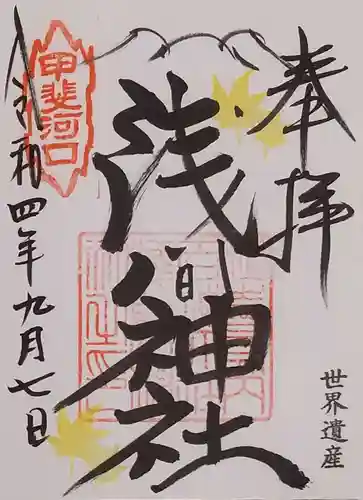 奉拝
甲斐河口
浅間神社
世界遺産
令和四年九月七日